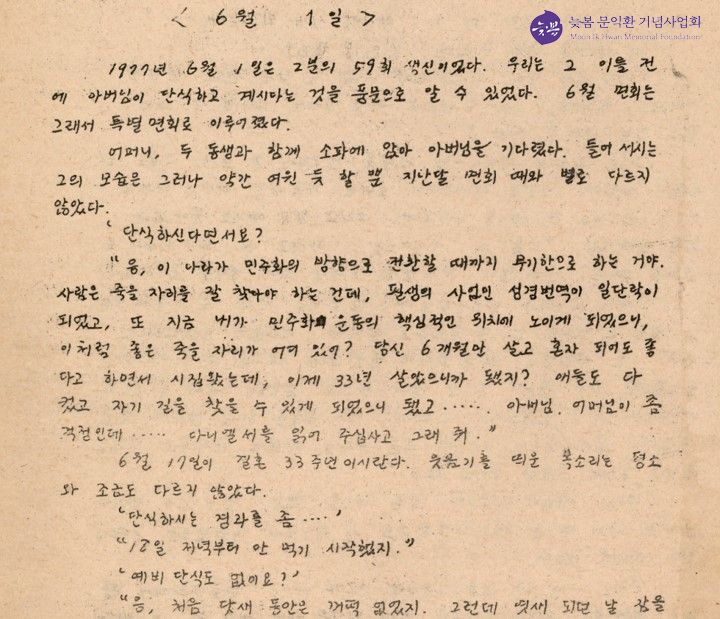 < 6월 1일 >
늦봄 문익환 기념사업회
Moon Ik Hwan Memorial Foundation
늦봄
1977년 6월 1일은 그분의 59회 생신이었다. 우리는 그 이틀 전
에 아버님이 단식하고 계시다는 것을 풍문으로 알 수 있었다. 6월 면회는
그래서 특별면회로 이루어졌다.
어머니, 두 동생과 함께 소파에 앉아 아버님을 기다렸다. 들어서시는
그의 모습은 그러나 약간 여윈 듯 할 뿐 지난달 면회 때와 별로 다르지
않았다.
'단식하신다면서요?
"응, 이 나라가 민주화의 방향으로 전환할 때까지 무기한으로 하는 거야.
사람은 죽을 자리를 잘 찾아야 하는 건데, 필생의 사업인 성경번역이 일단락이
되었고, 또 지금 내가 민주화 운동의 핵심적인 위치에 노이게 되었으니,
이처럼 좋은 죽을 자리가 어디 있어? 당신 6개월만 살고 혼자 되어도 좋
다고 하면서 시집왔는데, 이제 33년 살았으니까 됐지? 애들도 다
컸고 자기 길을 찾을 수 있게 되었으니 됐고 ...... 아버님, 어머님이 좀
걱정인데 ...... 다니엘서를 읽어 주십사고 그래 줘."
6월 17일이 결혼 33주년이시란다. 웃음기를 띄운 목소리는 평소
와 조금도 다르지 않았다.
'단식하시는 경과를 좀 ....'
"18일 저녁부터 안 먹기 시작했지."
'예비 단식도 없이요?'
"응, 처음 닷새 동안은 꺼떡 없었지. 그런데 엿새 되던 날 잠을